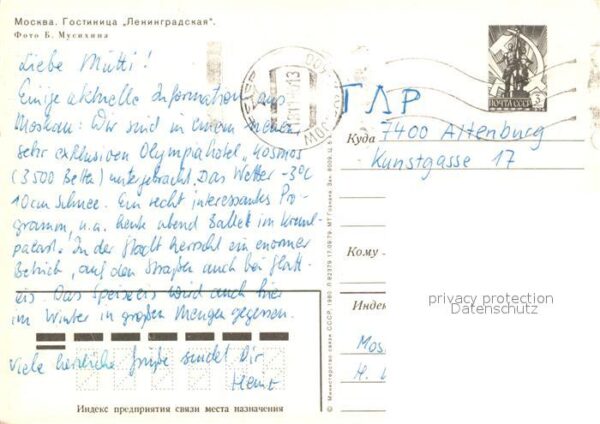 Москва. Гостиница „Ленинградская".
Фото Б. Мусихина
Liebe Mutti!
Einige aktuelle Information aus
Moskau: Wir sind in einem neuen,
sehr exklusiven Olympiahotel „Kosmos
(3500 Betten) untergebracht. Das Wetter -3°C
10cm Schnee. Ein recht interessantes Pro-
gramm, u.a. heute abend Ballet im Kreml-
palast. In der Stadt herrscht ein enormer
Betrieb, auf den Straßen auch bei Glatt-
eis. Das Speiseeis wird auch hier
im Winter in großen Mengen gegessen.
Viele herzliche Grüße sendet Dir
Индекс предприятия связи места назначения
© Министерство связи СССР. 1980
ПОЧТА СССР
ГДР
Куда 7400 Altenburg
Kunstgasse 17
Кому
Индекс
privacy protection
Datenschutz